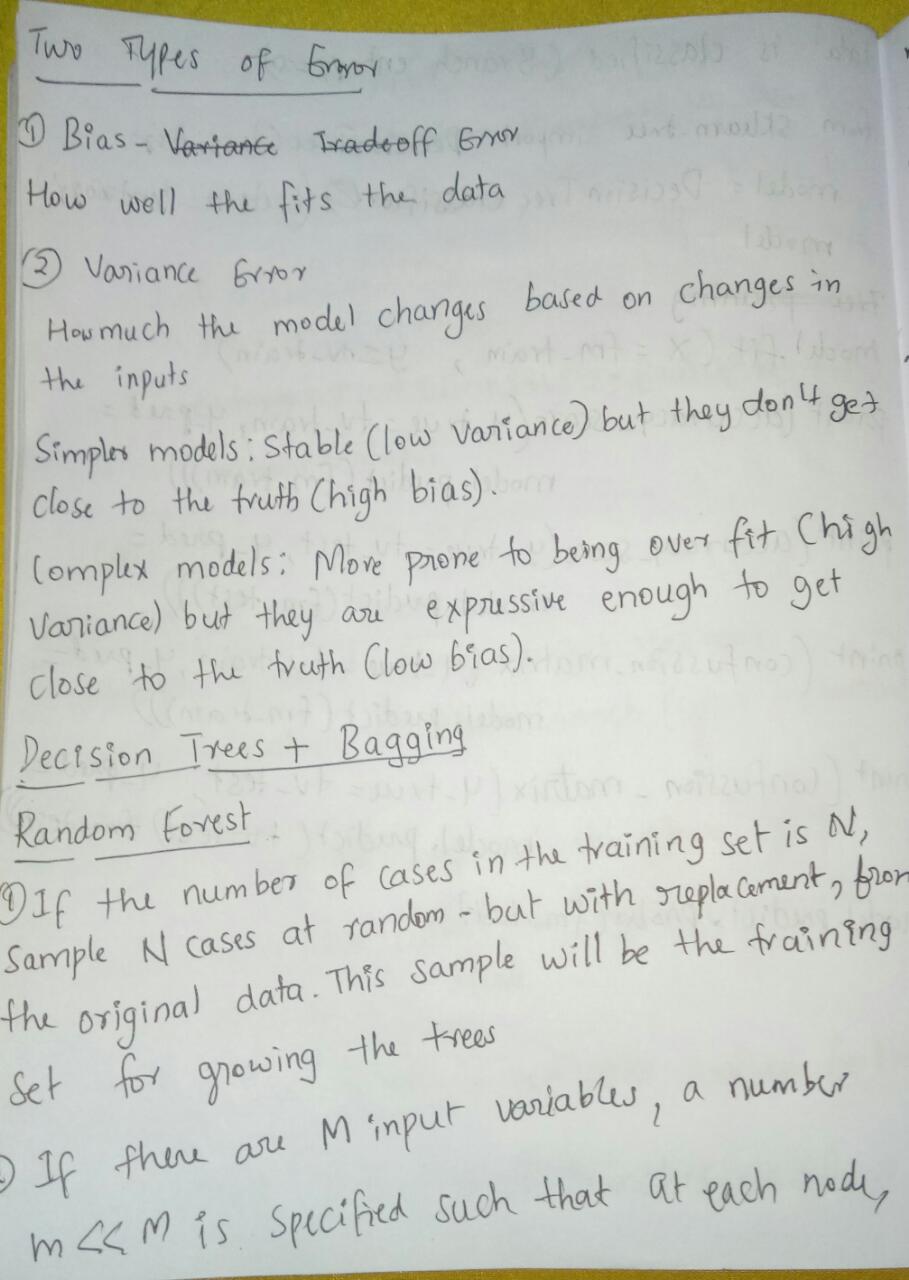 Two Types of Error
① Bias - Variance Tradeoff Error
How well the fits the data
② Variance Error
How much the model changes based on changes in
the inputs
Simpler models: Stable (low variance) but they don't get
close to the truth (high bias).
Complex models: More prone to being over fit (high
variance) but they are expressive enough to get
close to the truth (low bias).
Decision Trees + Bagging
Random Forest
① If the number of cases in the training set is N,
Sample N cases at random - but with replacement, from
the original data. This sample will be the training
set for growing the trees
If there are M input variables, a number
m << M is specified such that at each node,